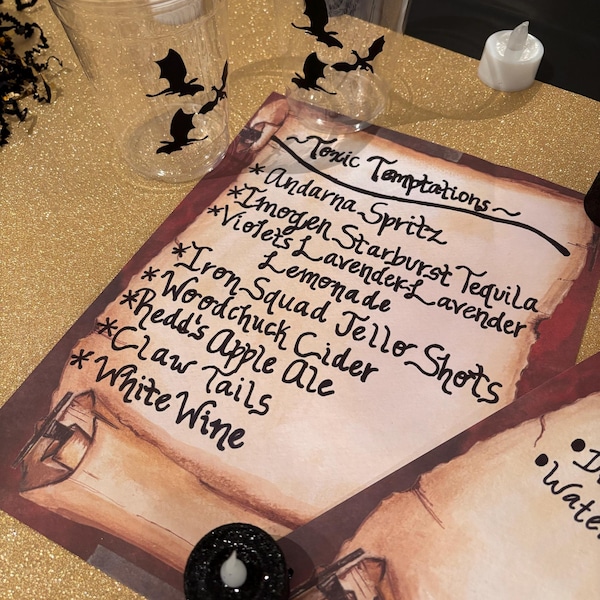 ~Toxic Temptations~
* Andarna Spritz
* Imogen Starburst Tequila
* Violets Lavender Lavender
Lemonade
* Iron Squad Jello Shots
* Woodchuck Cider
* Redd's Apple Ale
* Claw Tails
* White Wine
• Water